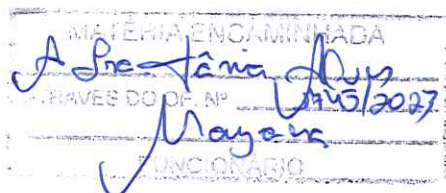 MATÉRIA ENCAMINHADA
A Sra Tânia
RAVÉS DO OF. Nº /2023
Mayara
FUNCIONÁRIO